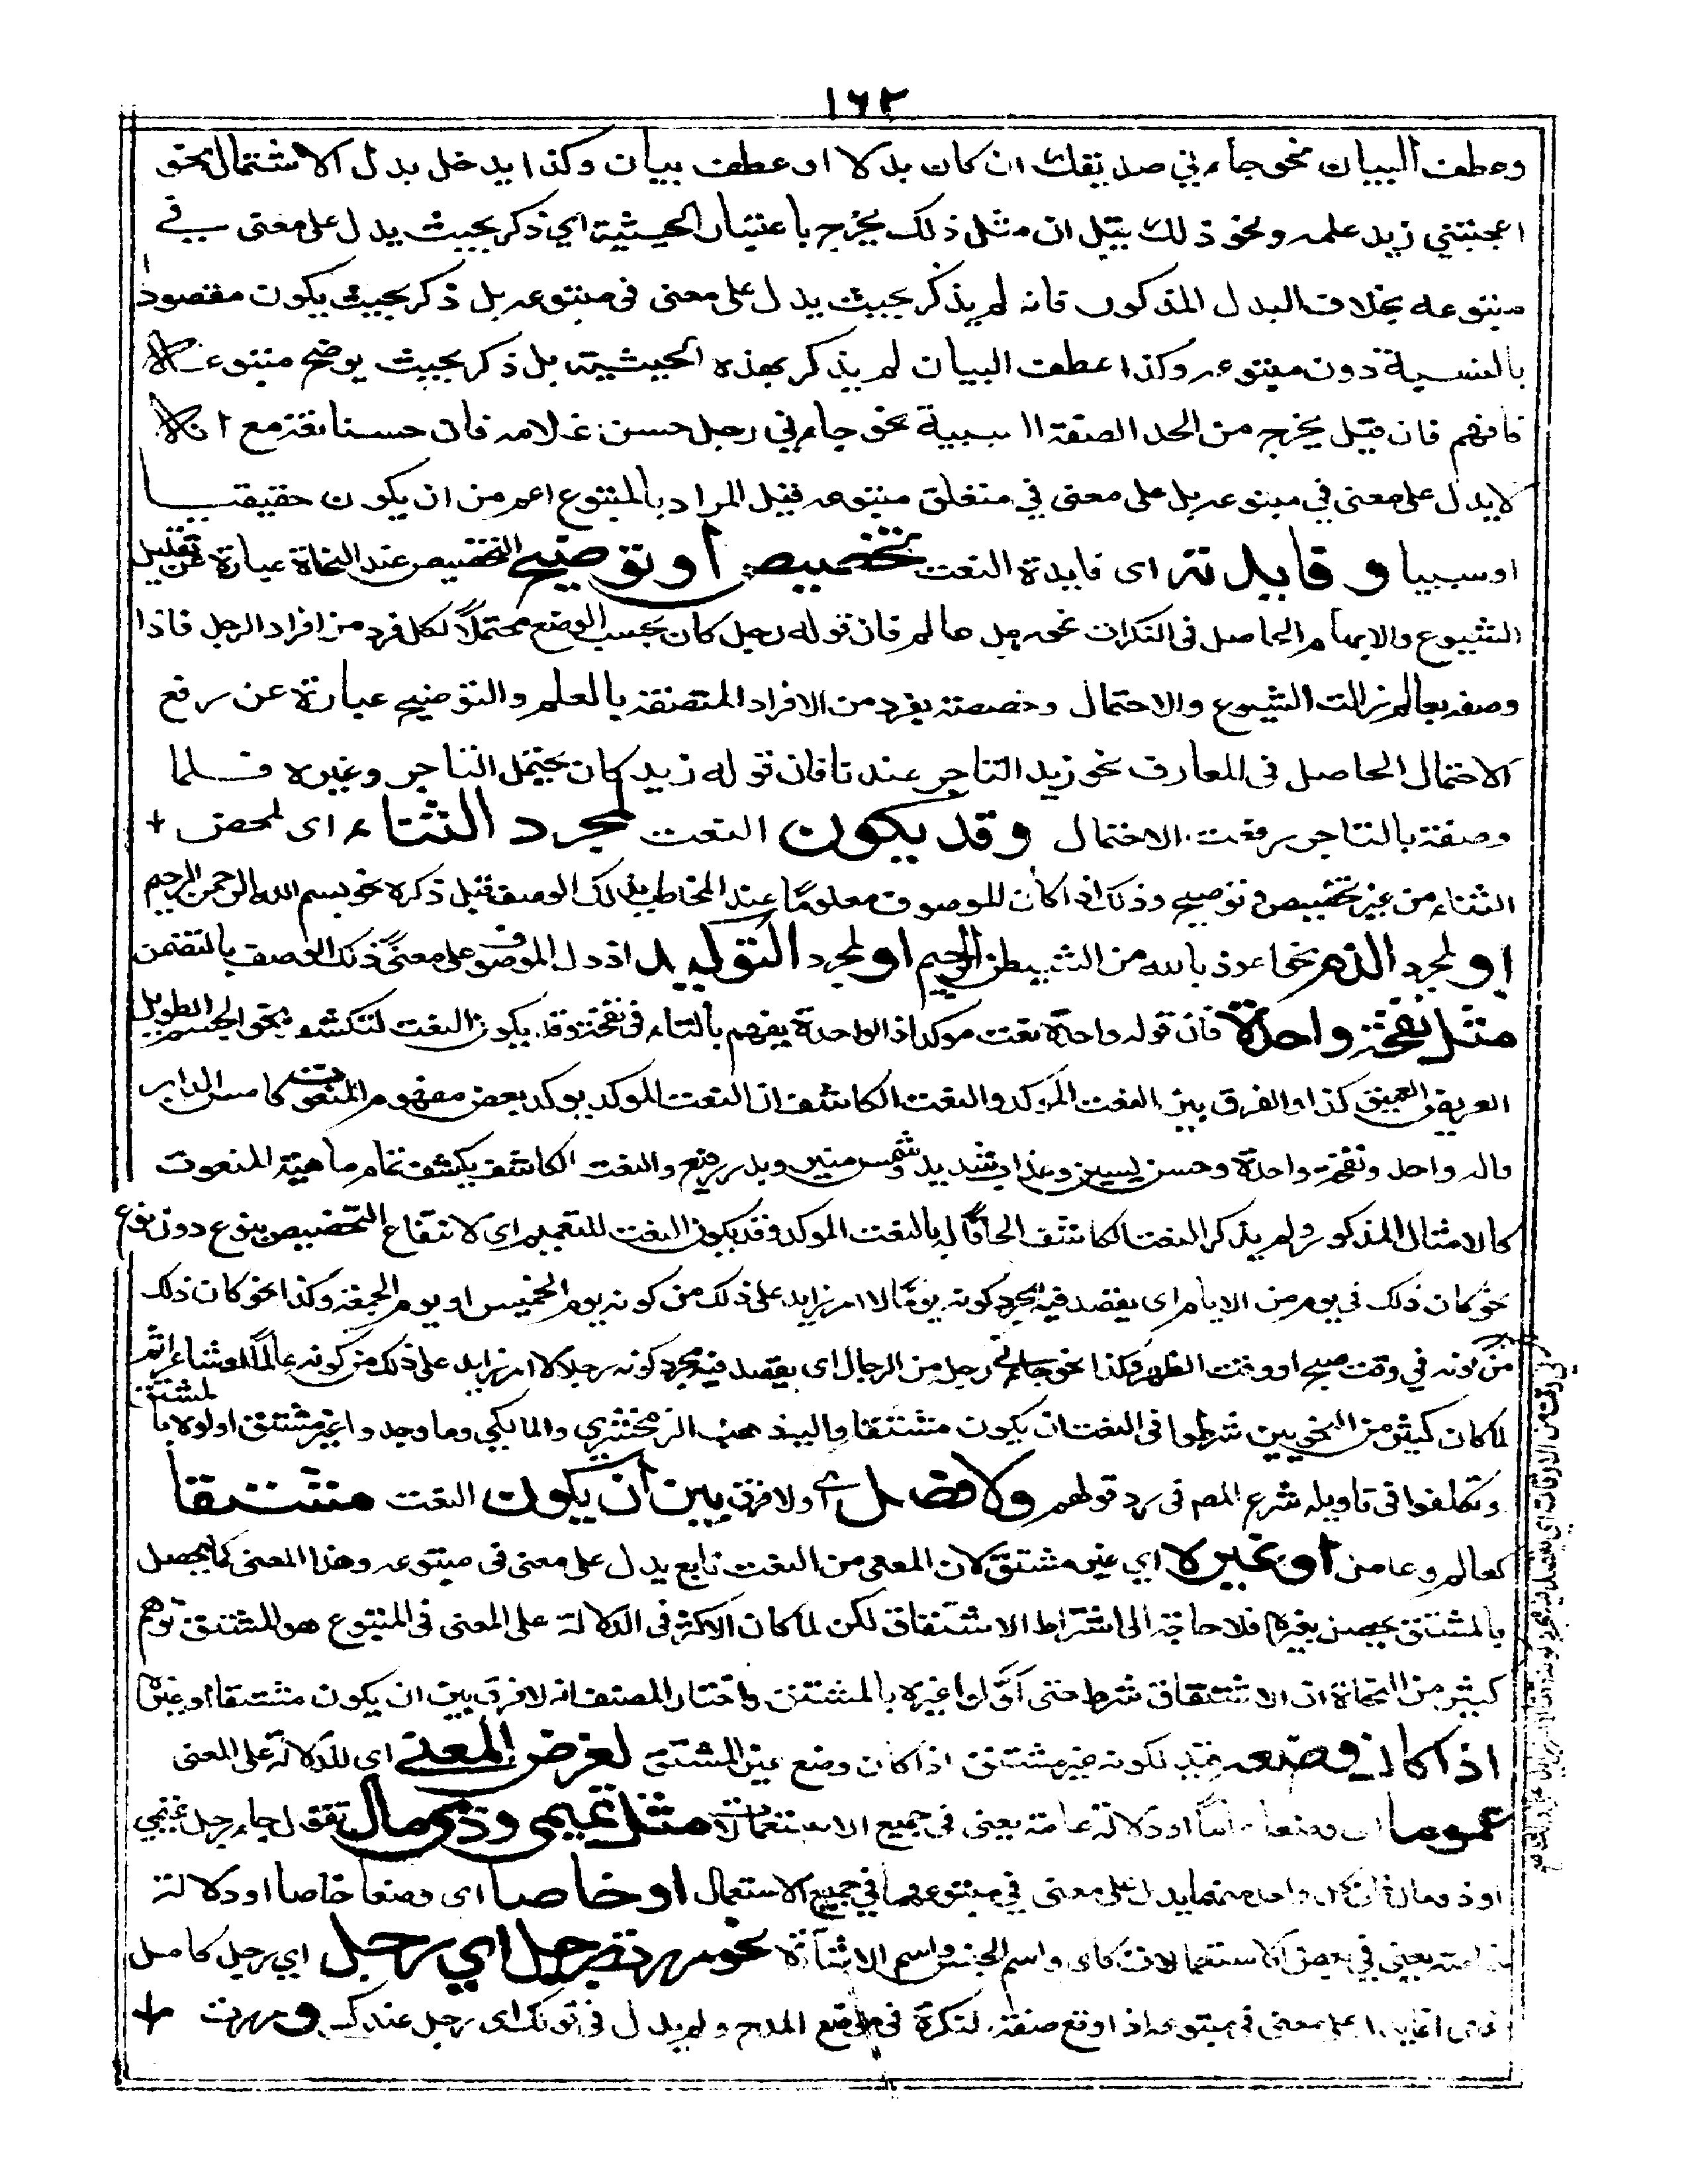 ١٦٢
وعطف البيان نحو جاءني صديقك ان كان بدلا او عطف بيان وكذا يدخل بدل الاشتمال نحو
اعجبتني زيد علمه ونحو ذلك قيل ان مثل ذلك يخرج باعتبار الحيثية اي ذكر بحيث يدل على معنى في
متبوعه بخلاف البدل المذكور فانه لم يذكر بحيث يدل على معنى في متبوعه بل ذكر بحيث يكون مقصودا
بالنسبة دون متبوعه وكذا عطف البيان لم يذكر بهذه الحيثية بل ذكر بحيث يوضح متبوعه
فافهم فان قيل يخرج من الحد الصفة السببية نحو جاءني رجل حسن غلامه فان حسنا نعته مع انه
لا يدل على معنى في متبوعه بل على معنى في متعلق متبوعه فقيل المراد بالمتبوع اعم من ان يكون حقيقيا
او سببيا و فايدته اى فايدة النعت تخصيص او توضيح التخصيص عند النحاة عبارة عن تقليل
الشيوع والابهام الحاصل فى النكرات نحو رجل عالم فان قوله رجل كان بحسب الوضع محتملاً لكل فرد من افراد الرجل فاذا
وصفه بعالم زالت الشيوع والاحتمال وخصصته بفرد من الافراد المتصفة بالعلم والتوضيح عبارة عن رفع
الاحتمال الحاصل فى المعارف نحو زيد التاجر عندنا فان قوله زيد كان يحتمل التاجر وغيره فلما
وصفته بالتاجر رفعت الاحتمال وقد يكون النعت لمجرد الثناء اى لمحض
الثناء من غير تخصيص و توضيح وذلك اذا كان للموصوف معلومًا عند المخاطب بذلك الوصف قبل ذكره نحو بسم الله الرحمن الرحيم
او لمجرد الذم نحو اعوذ بالله من الشيطن الرجيم او لمجرد التوكيد اذ دل الموصوف على معنى ذلك الوصف بالتضمن
مثل نفخة واحدة فان قوله واحدة نعت موكد اذ الواحدة يفهم بالتاء فى نفخة وقد يكون النعت للكشف نحو الجسم الطويل
العريض العميق كذا والفرق بين النعت الموكد والنعت الكاشف ان النعت الموكد يوكد بعض مفهوم المنعوت كامس الدابر
واله واحد ونفخة واحدة وحسن يسير وعذاب شديد وشمس منير وبدر رفيع والنعت الكاشف يكشف تمام ماهية المنعوت
كالامثال المذكور ولم يذكر النعت الكاشف الحاقًا له بالنعت الموكد وقد يكون النعت للتعميم اي لانتفاع التخصيص بنوع دون نوع
نحو كان ذلك في يوم من الايام اى يقصد فيه لمجرد كونه يومًا لا امر زايد على ذلك من كونه يوم الخميس او يوم الجمعة وكذا نحو كان ذلك
من كونه في وقت صبح او وقت الظهر وكذا نحو جاءني رجل من الرجال اى يقصد فيه مجرد كونه رجلا لا امر زايد على ذلك من كونه عالمًا او شاعرا ثم
لما كان كثير من النحويين شرطوا فى النعت ان يكون مشتقا واليه ذهب الزمخشري والمالكي وما وجدوا غير مشتق اولوه بالمشتق
وتكلفوا فى تاويله شرع المص فى رد قولهم ولا فصل اى ولا فرق بين ان يكون النعت مشتقا
كعالم وعامر او غيره اي غير مشتق لان المعنى من النعت تابع يدل على معنى فى متبوعه وهذا المعنى كما يحصل
بالمشتق يحصل بغيره فلا حاجة الى اشتراط الاشتقاق لكن لما كان الاكثر فى الدلالة على المعنى فى المتبوع هو المشتق توهم
كثير من النحاة ان الاشتقاق شرط حتى اَوَّلوا غيره بالمشتق واختار المصنف انه لا فرق بين ان يكون مشتقا او غيره
اذا كان وضعه قيد لكونه غير مشتق اذا كان وضع غير المشتق لغرض المعنى اى للدلالة على المعنى
عموما اى وضعا عاما او دلالة عامة يعنى فى جميع الاستعمالات مثل تميمي وذي مال تقول جاء رجل تميمي
او ذو مال فان كل واحد منهما يدل على معنى في متبوعهما في جميع الاستعمال او خاصا اى وضعا خاصا او دلالة
خاصة يعنى في بعض الاستعمالات كاى واسم الجنس واسم الاشارة نحو مررت برجل اي رجل اي رجل كامل
على معنى فى متبوعه اذا وقع صفة لنكرة في موضع المدح ولم يدل فى قولك اى رجل عندك ومررت